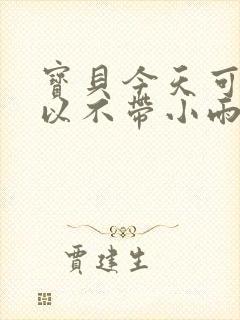 寶貝今天可
以不帶小雨
賈建生